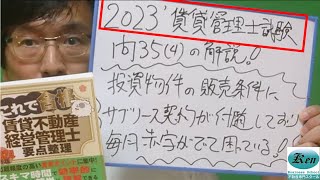 2023'賃貸管理士試験
問35(4)の解説!
投資物件の販売条件に
サブリース契約が付随しており
毎月赤字がでて困っている!
これで
賃貸不動産
経営管理士
要点整理
スキマ時間
Ken
Business School